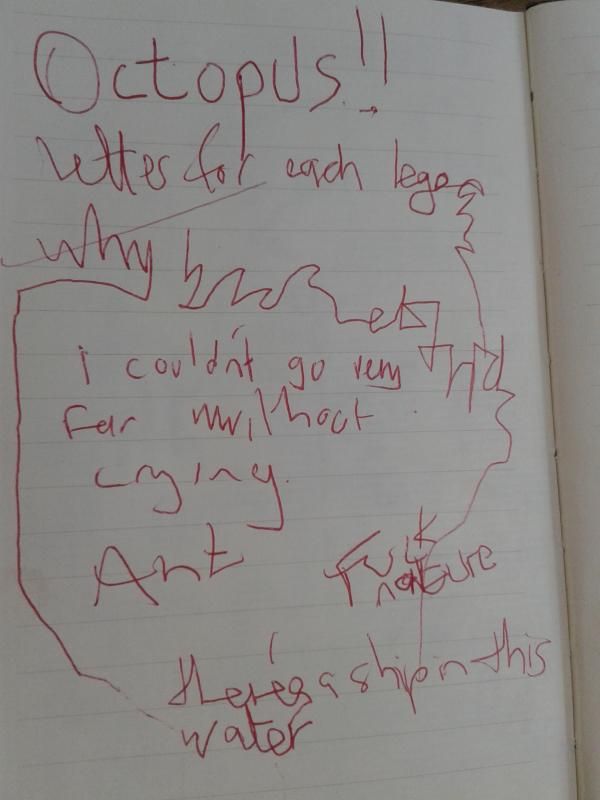 Octopus!!
letter for each lege
why
i couldn't go very
far without
crying.
Ant
Fuck
nature
there's a ship in this
water